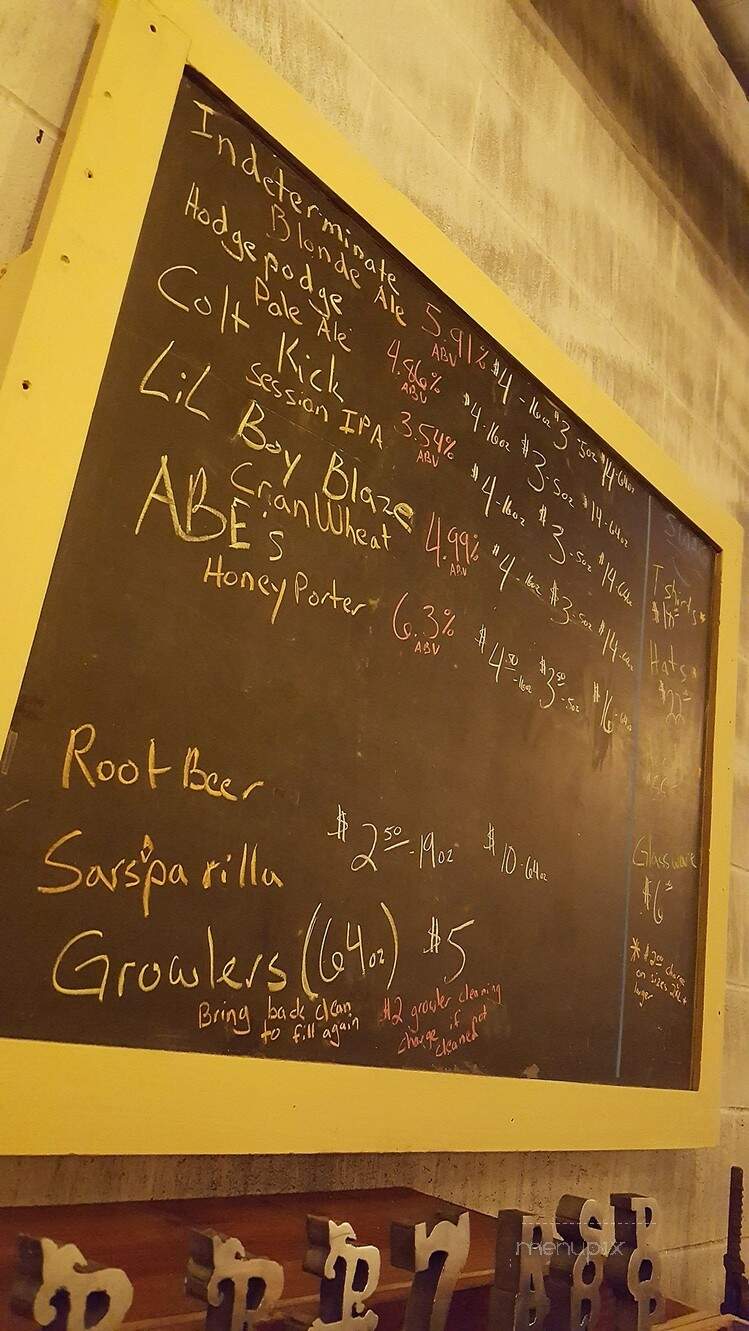 Indeterminate
Blonde Ale 5.91% ABV $4-16oz $3-5oz $14-64oz
Hodgepodge
Pale Ale 4.86% ABV $4-16oz $3-5oz $14-64oz
Colt Kick
session IPA 3.54% ABV $4-16oz $3-5oz $14-64oz
LiL Boy Blaze
CranWheat 4.99% ABV $4-16oz $3-5oz $14-64oz
ABE's
Honey Porter 6.3% ABV $4.50-16oz $3.50-5oz $16-64oz
Root Beer
$2.50-19oz $10-64oz
Sarsparilla
Growlers (64oz) $5
Bring back clean
to fill again
$2 growler cleaning
charge if not
cleaned
T shirts*
Hats*
$22
Glassware
$6
* $2.00 charge
on sizes 2XL +
larger
P P P 7 A S P
A 8 8 8
menupix